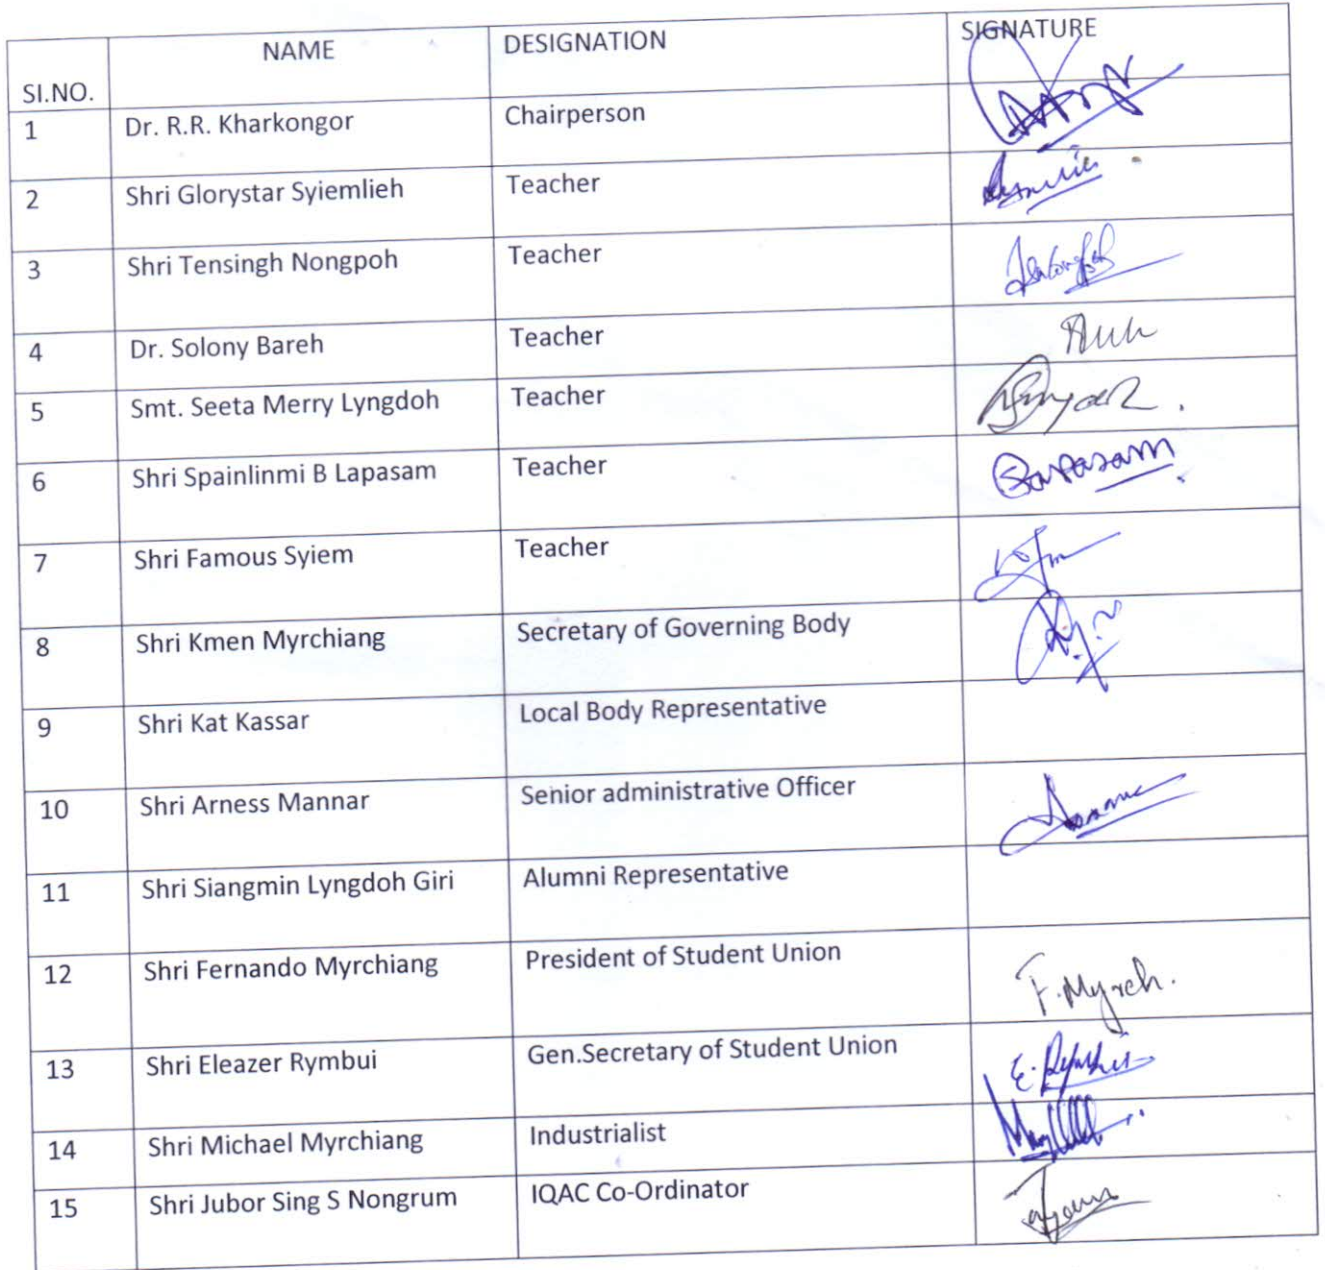 SI.NO. NAME DESIGNATION SIGNATURE
1 Dr. R.R. Kharkongor Chairperson
2 Shri Glorystar Syiemlieh Teacher
3 Shri Tensingh Nongpoh Teacher
4 Dr. Solony Bareh Teacher
5 Smt. Seeta Merry Lyngdoh Teacher
6 Shri Spainlinmi B Lapasam Teacher
7 Shri Famous Syiem Teacher
8 Shri Kmen Myrchiang Secretary of Governing Body
9 Shri Kat Kassar Local Body Representative
10 Shri Arness Mannar Senior administrative Officer
11 Shri Siangmin Lyngdoh Giri Alumni Representative
12 Shri Fernando Myrchiang President of Student Union F. Myrch.
13 Shri Eleazer Rymbui Gen.Secretary of Student Union
14 Shri Michael Myrchiang Industrialist
15 Shri Jubor Sing S Nongrum IQAC Co-Ordinator